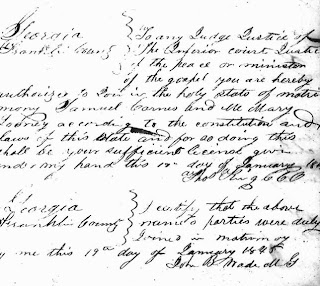 Georgia } To any Judge Justice of
Franklin County } the Inferior court, Justice
of the peace or minister
of the gospel you are hereby
authorized to Join in the holy state of matri
mony Samuel Carnes and Mary
according to the constitution and
laws of this State and for so doing this
shall be your sufficient license given
under my hand this day of January
Thos King C C O
Georgia } I certify that the above
Franklin County } named parties were duly
Joined in matrimony
by me this 19th day of January
John B Wade M G